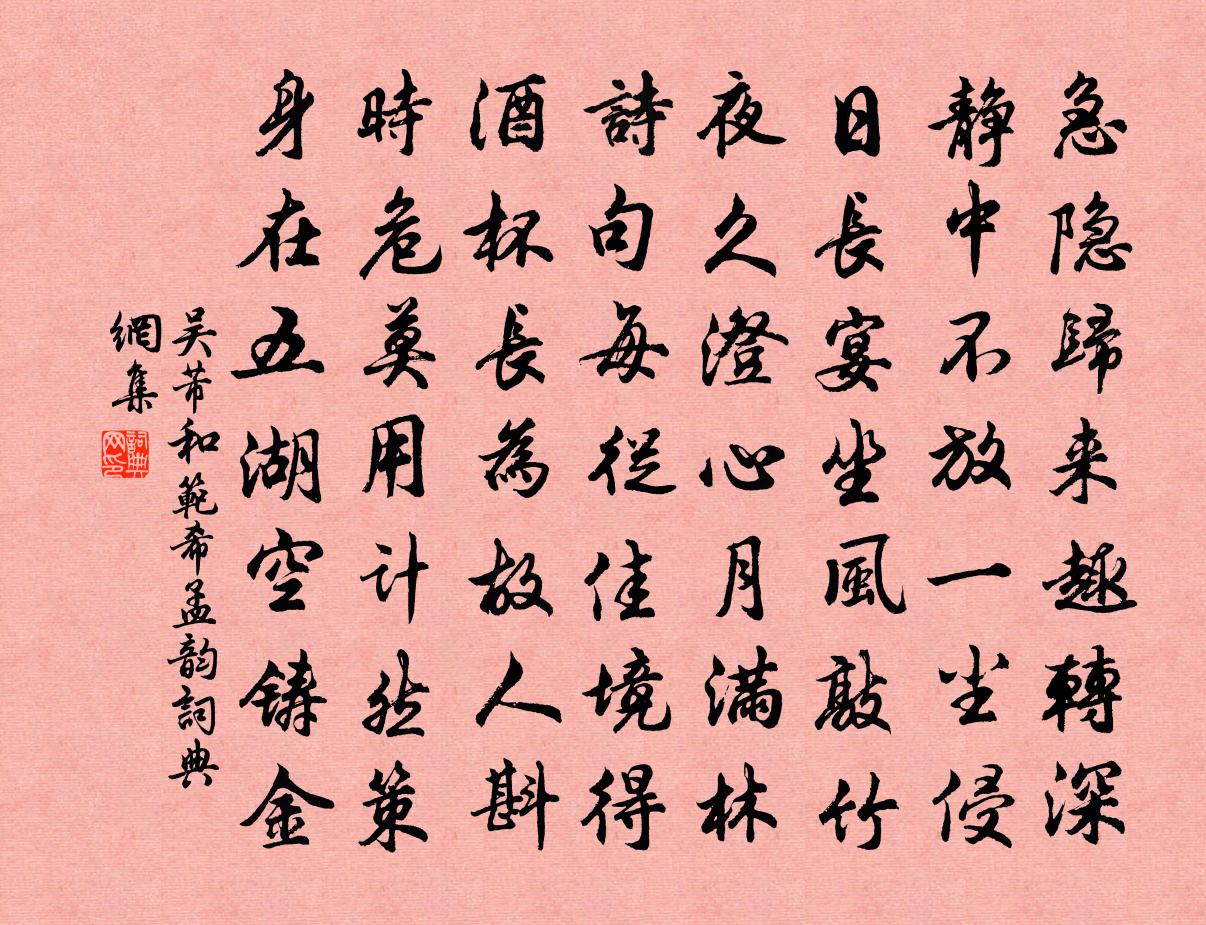 急隐歸来趣轉深
静中不放一尘侵
日長宴坐風敲竹
夜久澄心月满林
詩句每從佳境得
酒杯長為故人斟
時危莫用计然策
身在五湖空鑄金
吴芾和範希孟韵詞典
網集
詞典
网印